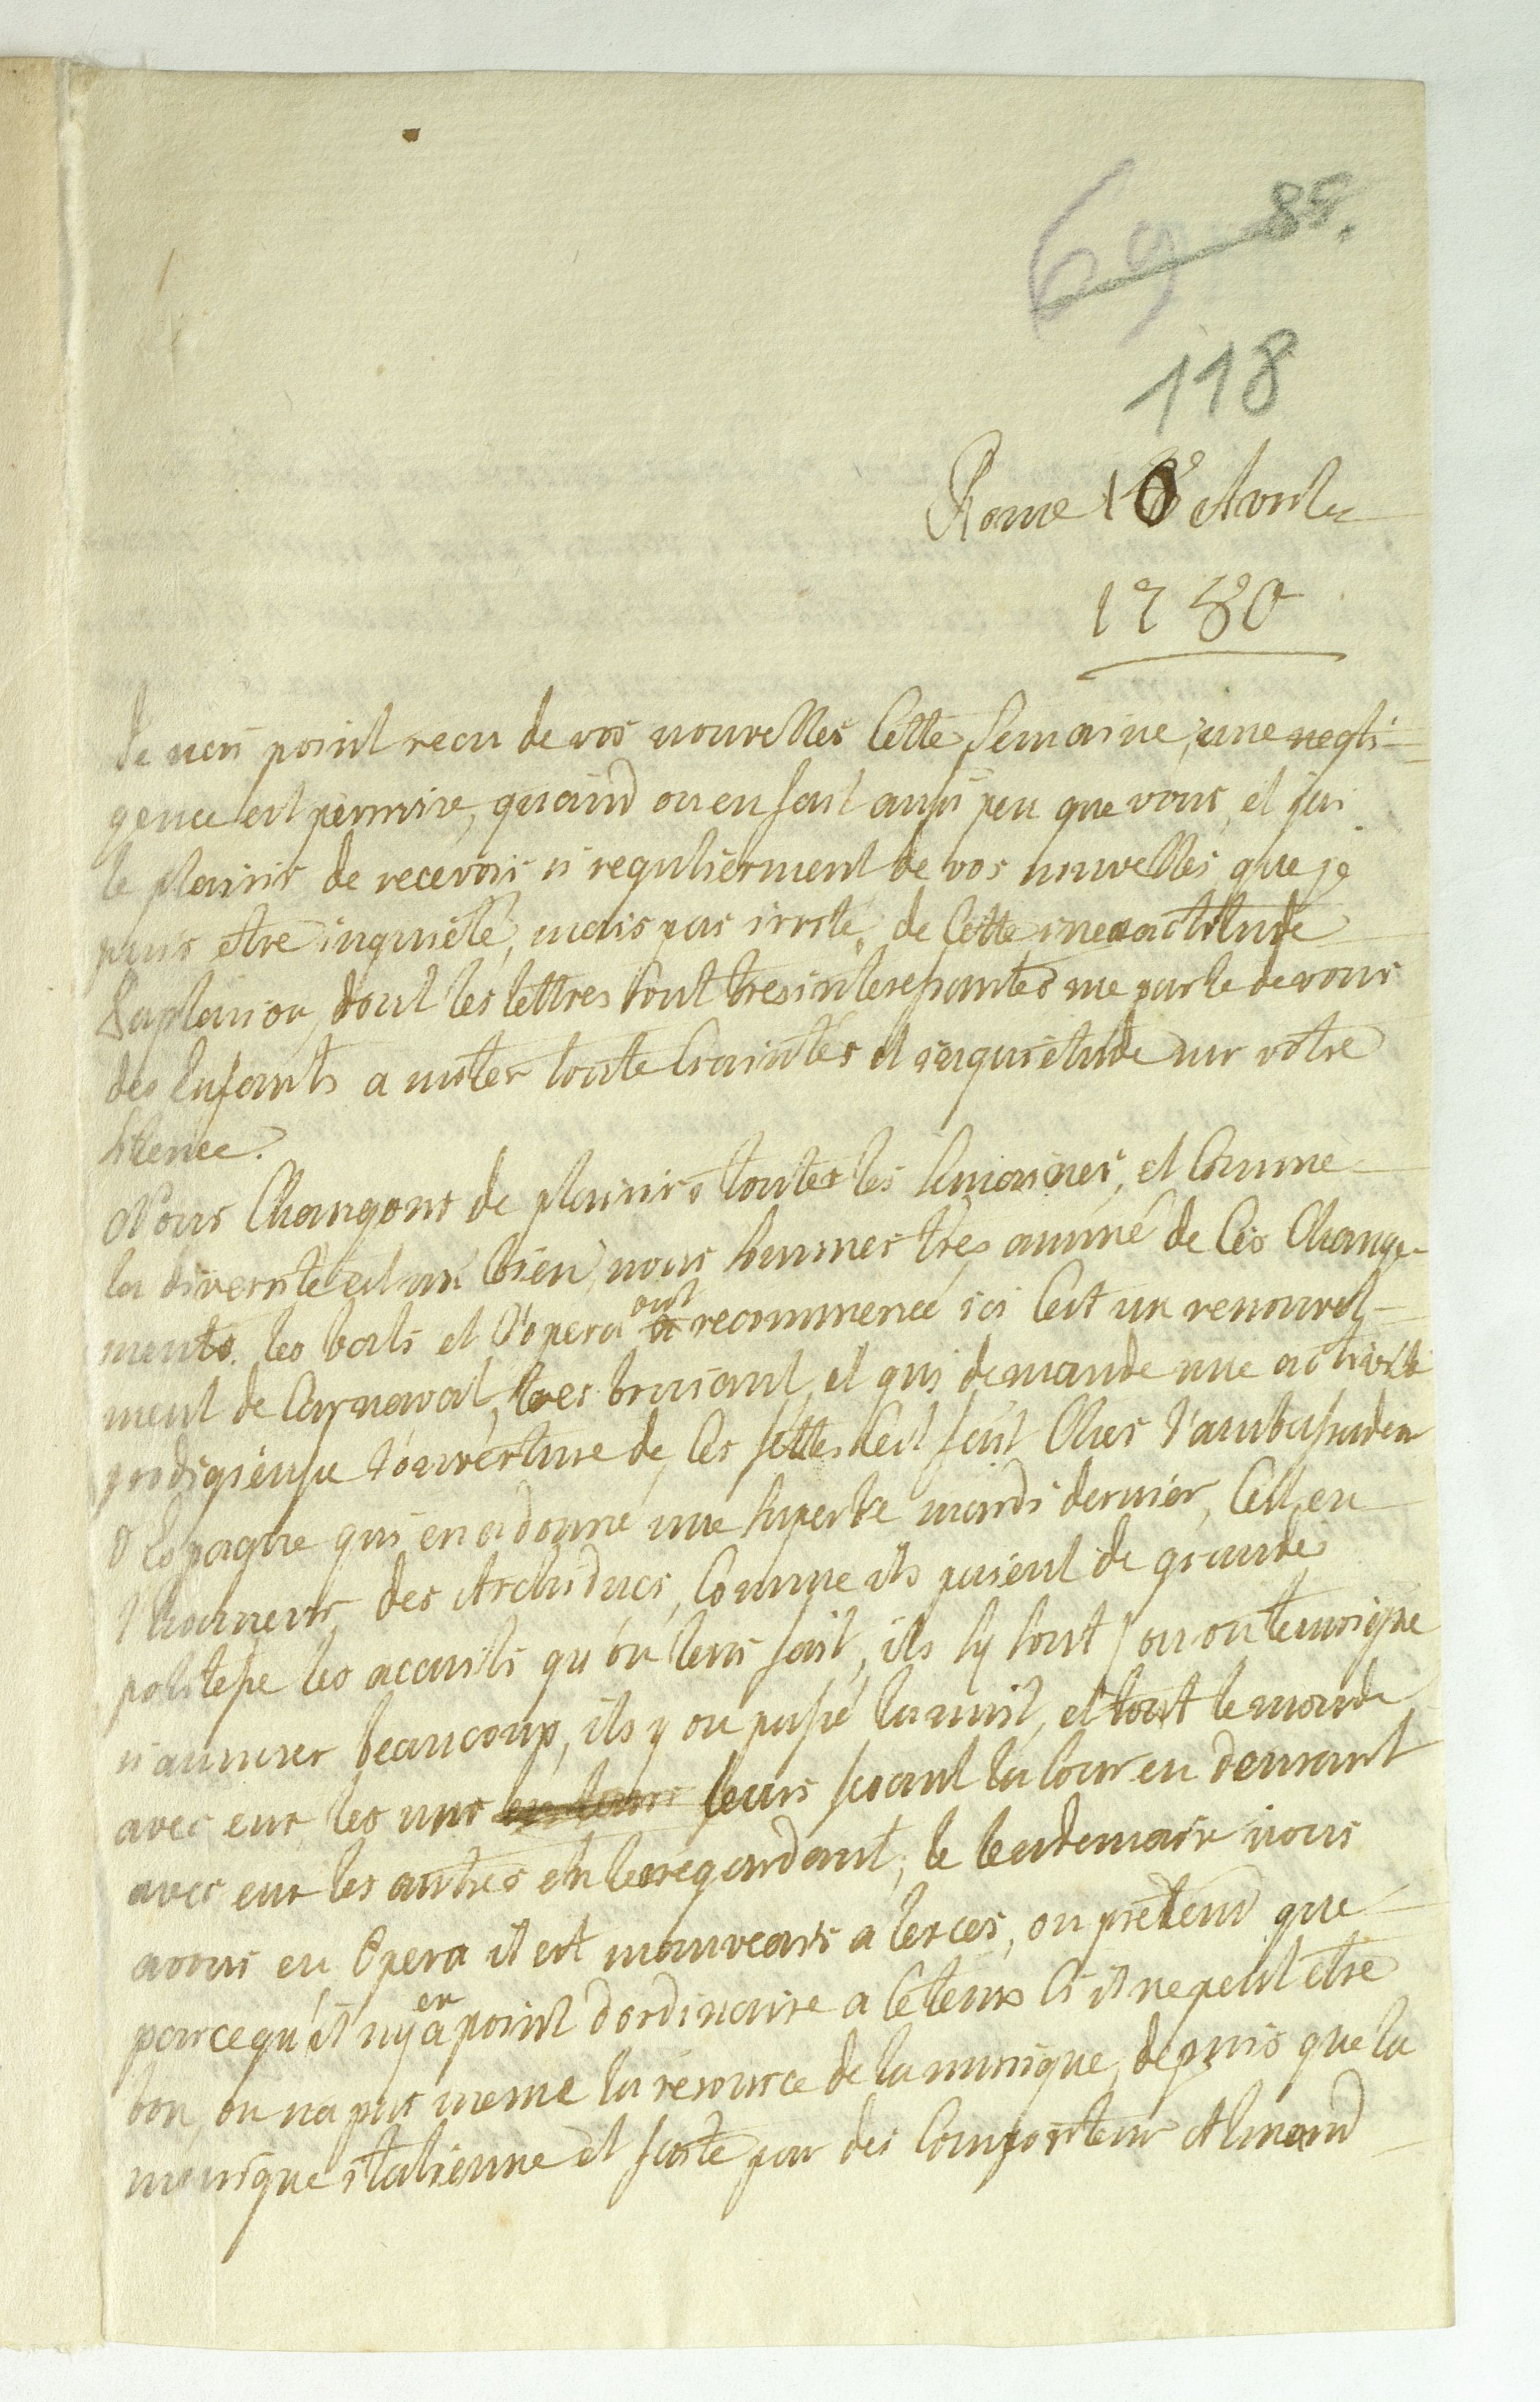 69 85.
118
Rome 10 Avrile
1780
Je nai point recu de vos nouvelles Cette Semaine, une negli-
gence est permise, quand on en fait aussi peu que vous, et jai
le plaisir de recevoir si regulierment de vos nouvelles que je
puis etre inquiété, mais pas irrité, de Cette inexactitude
dont les lettres sont tres interessantes me parle de vous
des Enfants a mster toute Craintes et inquietude sur votre
silence.
Nous Changons de plaisirs toutes les Semaines, et Comme
la diversité est un bien, nous Sommes très animé de Ces Change-
ments. les bals et l'opera ont recommencé ici Cest un renouvel-
ment de Carnaval, tres bruiant, et qui demande une activité
prodigieuse l'ouverture de Ces fettes Cest fait Ches l'ambassadeur
d'Espagne qui en a donné une superbe mardi dernier, Cest en
l'honneur des Archiducs, Comme ils paient de grande
politesse les accuils qu'on leurs fait, ils sy sont / ou on temoigne
s'amuser beaucoup, ils y on passé la nuit, et tout le monde
avec eux les uns leurs faisant la Cour en densant
avec eux les autres en les regardant; le lendemain nous
avons eu Opera il est mauvais a lexces, on pretend que
parcequ'il ny en a point dordinaire a Ce tems Ci il ne peut être
bon, on na pas meme la resource de la musique, depuis que la
musique italienne et faite par des Compositeur Almand